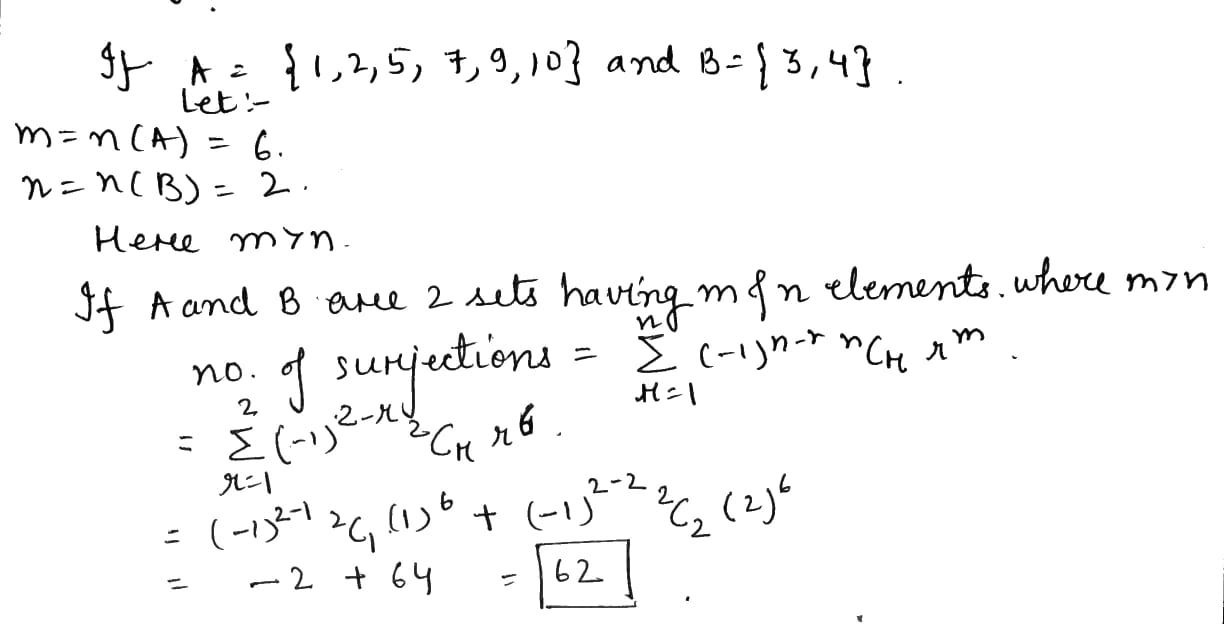 If A = {1,2,5, 7,9,10} and B={3,4}.
Let:-
m=n(A) = 6.
n=n(B) = 2.
Here m>n.
If A and B are 2 sets having m & n elements. where m>n
no. of surjections = n Σ r=1 (-1)^n-r nCr r^m.
= 2 Σ r=1 (-1)^2-r 2Cr r^6.
= (-1)^2-1 2C1 (1)^6 + (-1)^2-2 2C2 (2)^6
= -2 + 64 = 62.